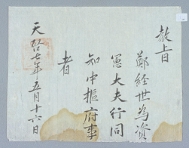 教旨
鄭經世爲資
憲大夫行同
知中樞府事
者
天啓七年五月十六日